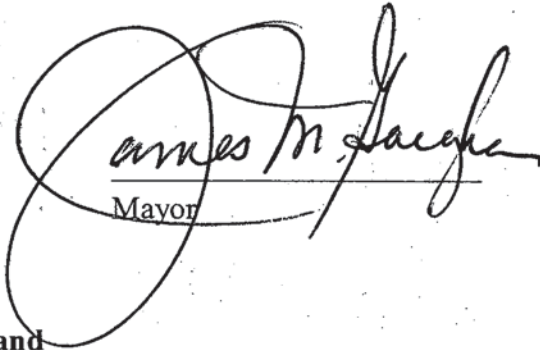 James M. Gaughan
Mayor
and